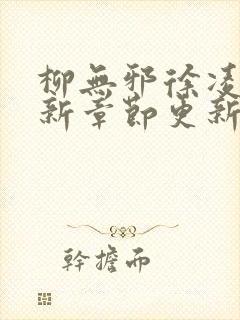 柳無邪徐凌
新章節更新
幹擔而